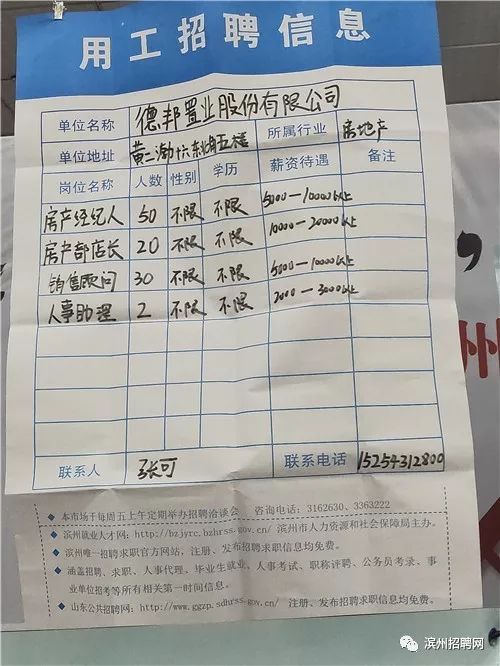 用工招聘信息
单位名称 德邦置业股份有限公司
单位地址 黄二渤十六东北角五楼 所属行业 房地产
岗位名称 人数 性别 学历 薪资待遇 备注
房产经纪人 50 不限 不限 5000—10000以上
房产部店长 20 不限 不限 10000—20000以上
销售顾问 30 不限 不限 5000—10000以上
人事助理 2 不限 不限 2000—3000以上
联系人 张可 联系电话 15254312800
本市场于每周五上午定期举办招聘洽谈会 咨询电话：3162630、3363222
滨州就业人才网：http://bzjyrc.bzhrss.gov.cn/滨州市人力资源和社会保障局主办。
滨州唯一招聘求职官方网站，注册、发布招聘求职信息均免费。
涵盖招聘、求职、人事代理、毕业生就业、人事考试、职称评聘、公务员考录、事
业单位招考等所有相关第一时间信息。
山东公共招聘网：http://www.ggzp.sdhrss.gov.cn/ 注册、发布招聘求职信息均免费。
州
滨州招聘网